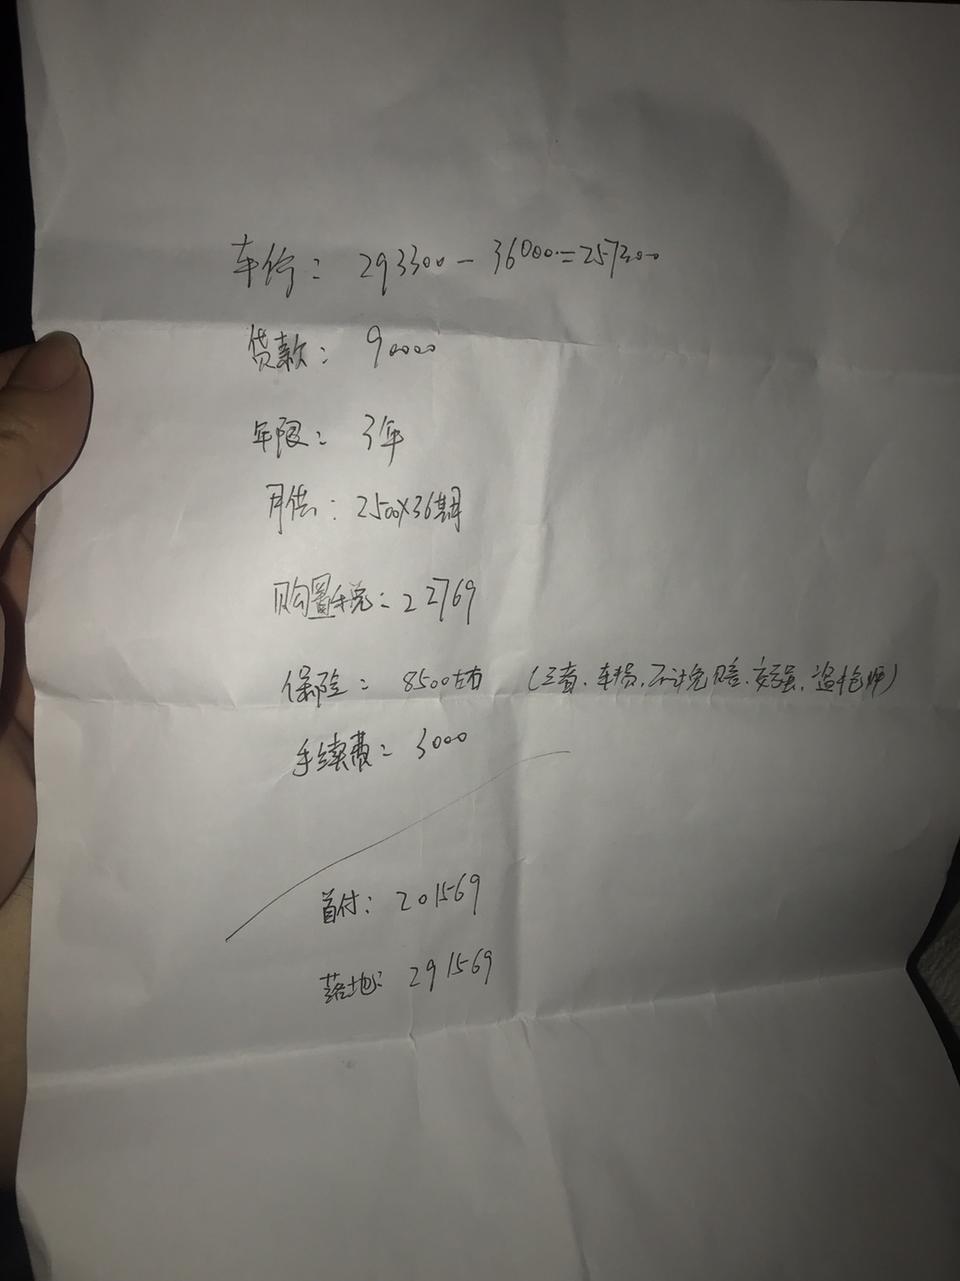 车价：293300－36000=257300
贷款：90000
年限：3年
月供：2500×36期
购置税：22769
保险：8500左右 （三者、车损、不计免赔、交强、盗抢）
手续费：3000
首付：201569
落地：291569